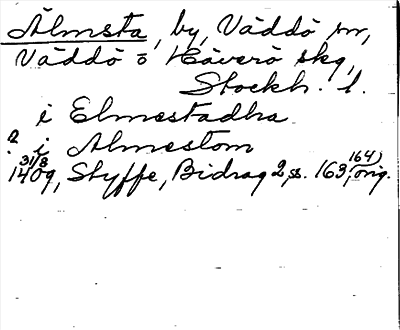 Älmsta, by, Väddö sn,
Väddö o Häverö skg,
Stockh. l.
i Elmestadha
? i Almestom
31/8 1409, Styffe, Bidrag 2, s. 163, 164) orig.